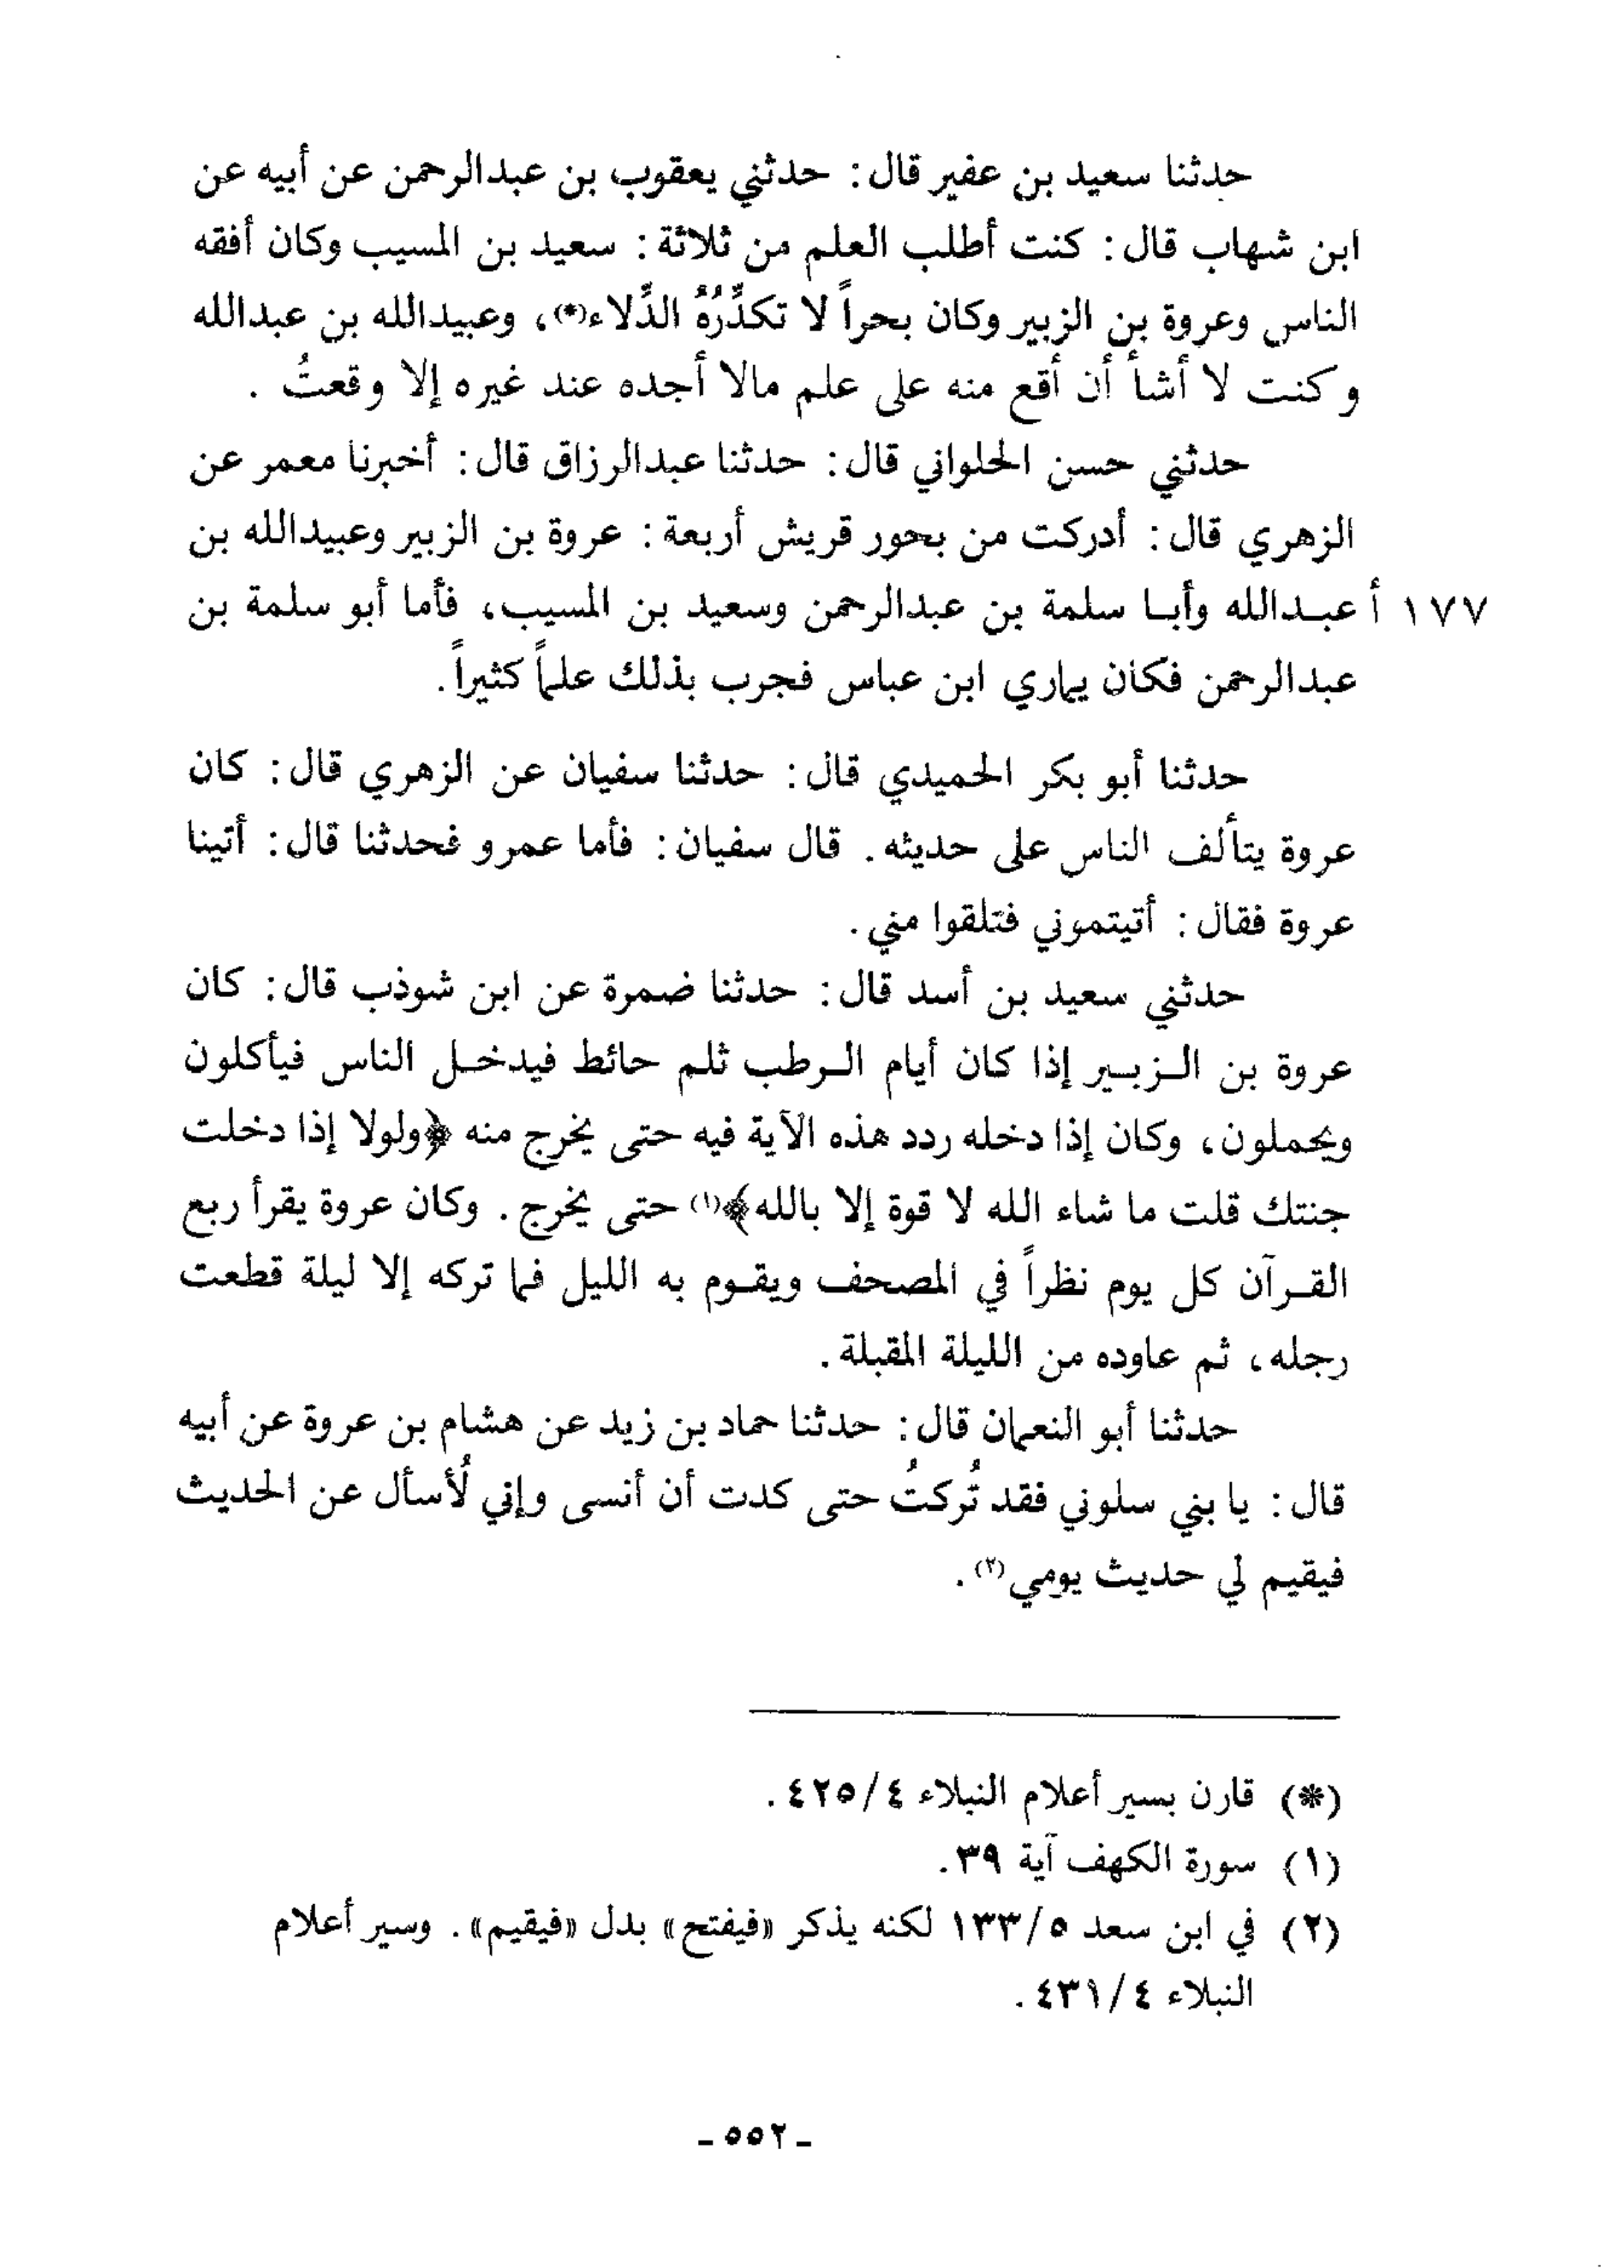 حدثنا سعيد بن عفير قال: حدثني يعقوب بن عبدالرحمن عن أبيه عن
ابن شهاب قال: كنت أطلب العلم من ثلاثة: سعيد بن المسيب وكان أفقه
الناس وعروة بن الزبير وكان بحراً لا تكدِّرُهُ الدِّلاء(*)، وعبيدالله بن عبدالله
وكنت لا أشأ أن أقع منه على علم مالا أجده عند غيره إلا وقعتُ .
حدثني حسن الحلواني قال: حدثنا عبدالرزاق قال: أخبرنا معمر عن
الزهري قال: أدركت من بحور قريش أربعة: عروة بن الزبير وعبيدالله بن
١٧٧ أ عبدالله وأبا سلمة بن عبدالرحمن وسعيد بن المسيب، فأما أبو سلمة بن
عبدالرحمن فكان يماري ابن عباس فجرب بذلك علماً كثيراً.
حدثنا أبو بكر الحميدي قال: حدثنا سفيان عن الزهري قال: كان
عروة يتألف الناس على حديثه. قال سفيان: فأما عمرو فحدثنا قال: أتينا
عروة فقال: أتيتموني فتلقوا مني.
حدثني سعيد بن أسد قال: حدثنا ضمرة عن ابن شوذب قال: كان
عروة بن الزبير إذا كان أيام الرطب ثلم حائط فيدخل الناس فيأكلون
ويحملون، وكان إذا دخله ردد هذه الآية فيه حتى يخرج منه ﴿ولولا إذا دخلت
جنتك قلت ما شاء الله لا قوة إلا بالله﴾(١) حتى يخرج. وكان عروة يقرأ ربع
القرآن كل يوم نظراً في المصحف ويقوم به الليل فما تركه إلا ليلة قطعت
رجله، ثم عاوده من الليلة المقبلة.
حدثنا أبو النعمان قال: حدثنا حماد بن زيد عن هشام بن عروة عن أبيه
قال: يا بني سلوني فقد تُركتُ حتى كدت أن أنسى وإني لُأسأل عن الحديث
فيقيم لي حديث يومي(٢).
(*) قارن بسير أعلام النبلاء ٤/٤٢٥.
(١) سورة الكهف آية ٣٩.
(٢) في ابن سعد ٥/١٣٣ لكنه يذكر «فيفتح» بدل «فيقيم». وسير أعلام
النبلاء ٤/٤٣١.
- ٥٥٢ -